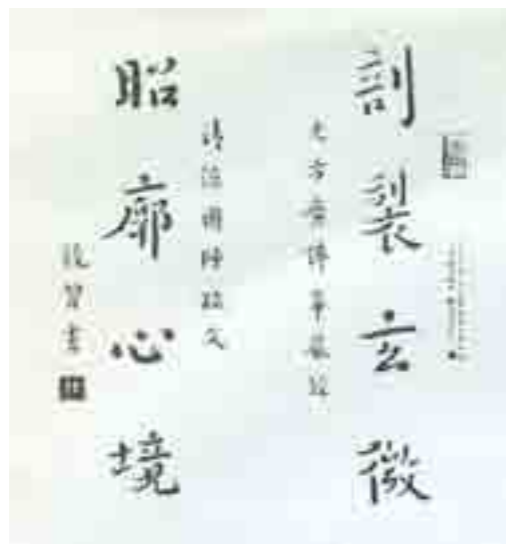 剖裂玄微
大方廣佛華嚴經
清涼國師疏文
昭廓心境